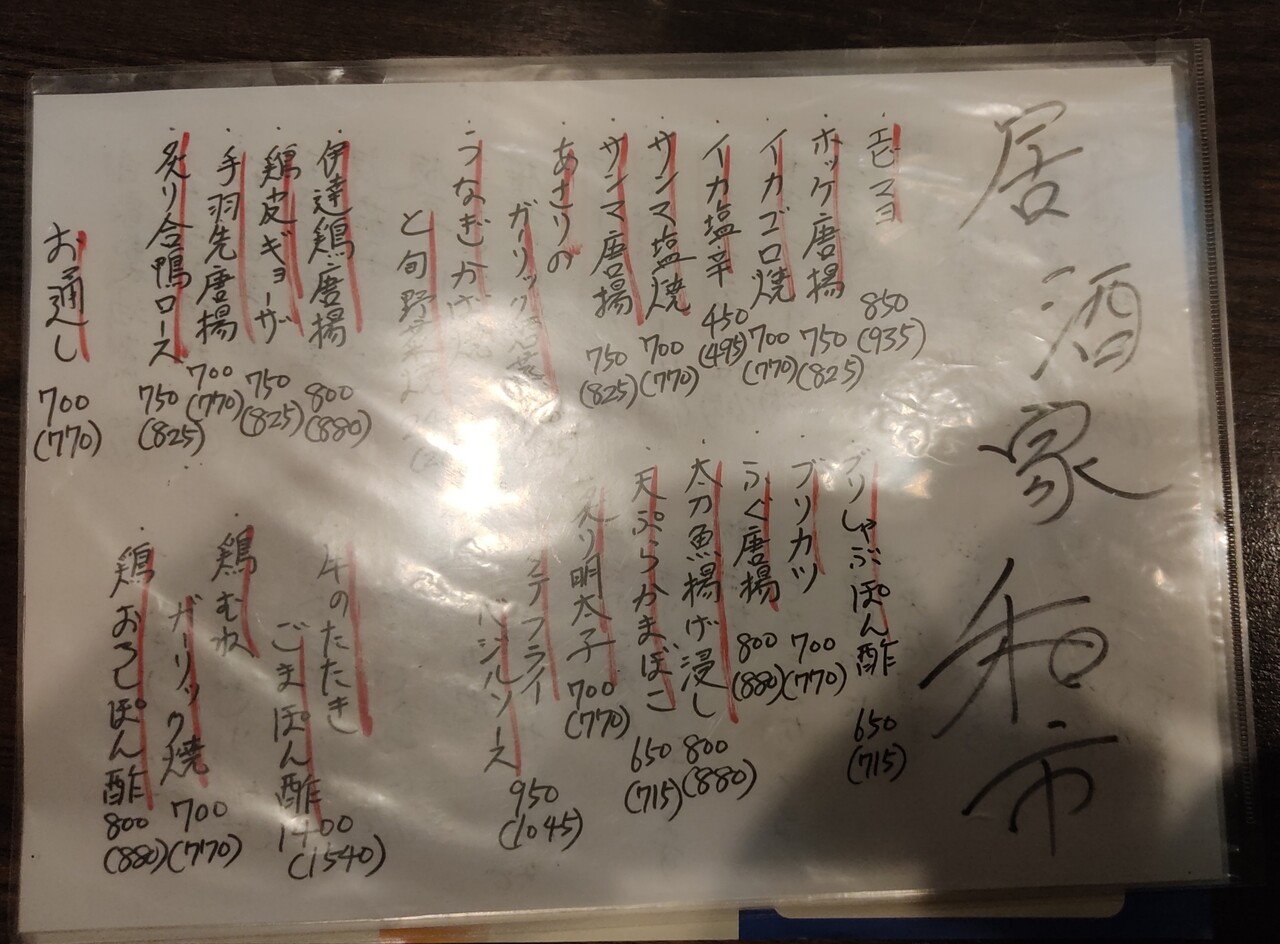 居酒家 和市
・エビマヨ 850 (935)
・ホッケ唐揚 750 (825)
・イカゴロ焼 700 (770)
・イカ塩辛 450 (495)
・サンマ塩焼 700 (770)
・サンマ唐揚 750 (825)
・あさりの
ガリック
・うなぎかば焼
と旬野菜
・伊達鶏唐揚 800 (880)
・鶏皮ギョーザ 750 (825)
・手羽先唐揚 700 (770)
・炙り合鴨ロース 750 (825)
お通し 700 (770)
・ブリしゃぶぽん酢 650 (715)
・ブリカツ 700 (770)
・ふぐ唐揚 800 (880)
・太刀魚揚げ浸し 800 (880)
・天ぷらかまぼこ 650 (715)
炙り明太子 700 (770)
フライ
バジルソース 950 (1045)
牛のたたき
ごまぽん酢 1400 (1540)
・鶏むね
ガーリック焼 700 (770)
・鶏おろしぽん酢 800 (880)